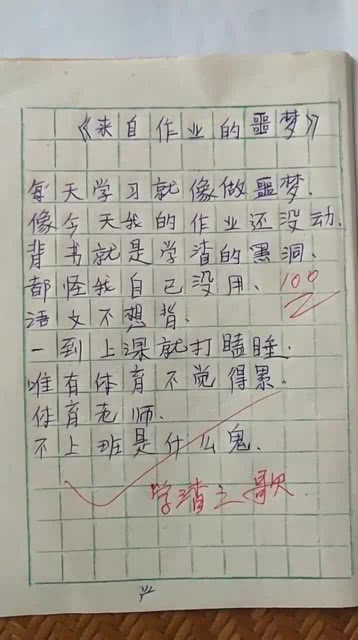 《来自作业的噩梦》
每天学习就像做噩梦.
像今天我的作业还没动.
背书就是学渣的黑洞.
都怪我自己没用. 100
语文不想背.
一到上课就打瞌睡.
唯有体育不觉得累.
体育老师.
不上班是什么鬼.
学渣之歌.